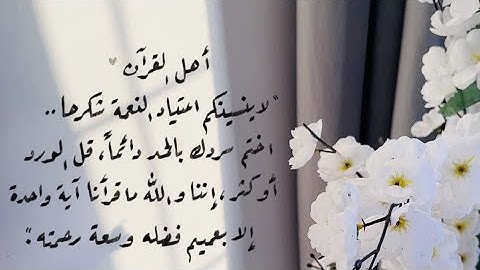 أهل القرآن
"لا ينسينكم اعتياد النعمة شكرها..
اختم سردك بالحمد دائماً، قل الورد
أو كثر، إننا والله ما قرأنا آية واحدة
إلا بعميم فضله وسعة رحمته."